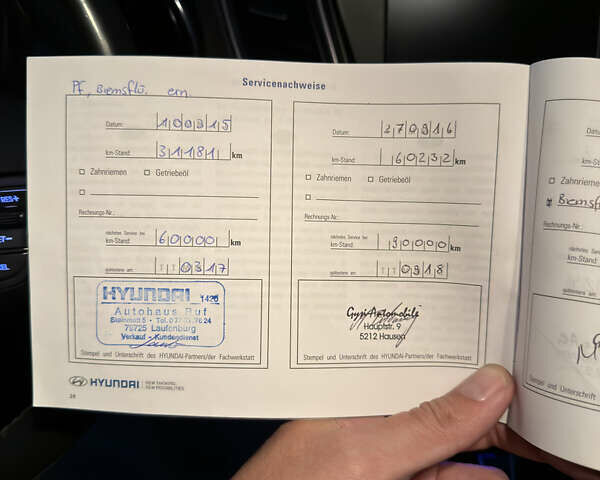 Servicenachweise
Pf, Bremsflü. ern
Datum: 100315
km-Stand: 31181 km
Zahnriemen Getriebeöl
Rechnungs-Nr.:
nächstes Service bei
km-Stand: 60000 km
spätestens am: T T 0317
HYUNDAI
Autohaus Ruf
79725 Laufenburg
Verkauf - Kundendienst
Stempel und Unterschrift des HYUNDAI-Partners/der Fachwerkstatt
HYUNDAI NEW THINKING. NEW POSSIBILITIES.
Datum: 270916
km-Stand: 60232 km
Zahnriemen Getriebeöl
Rechnungs-Nr.:
nächstes Service bei
km-Stand: 90000 km
spätestens am: T T 0918
Gysi Automobile
Hauptstr. 9
5212 Hausen
Stempel und Unterschrift des HYUNDAI-Partners/der Fachwerkstatt
Datum:
km-Stand:
Zahnriemen
Bremsfl
Rechnungs-Nr.:
nächstes Service bei
km-Stand:
spätestens am:
Stempel und Unterschrift